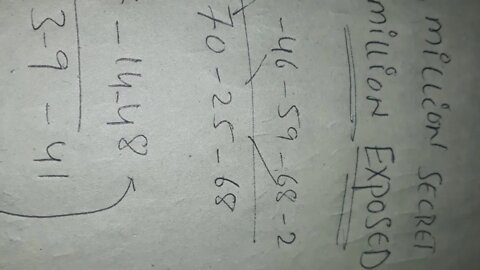 MiLLiON SECRET
MiLLiON EXPOSED
-46-59-68-2
70-25-68
-14-48
3-9-41